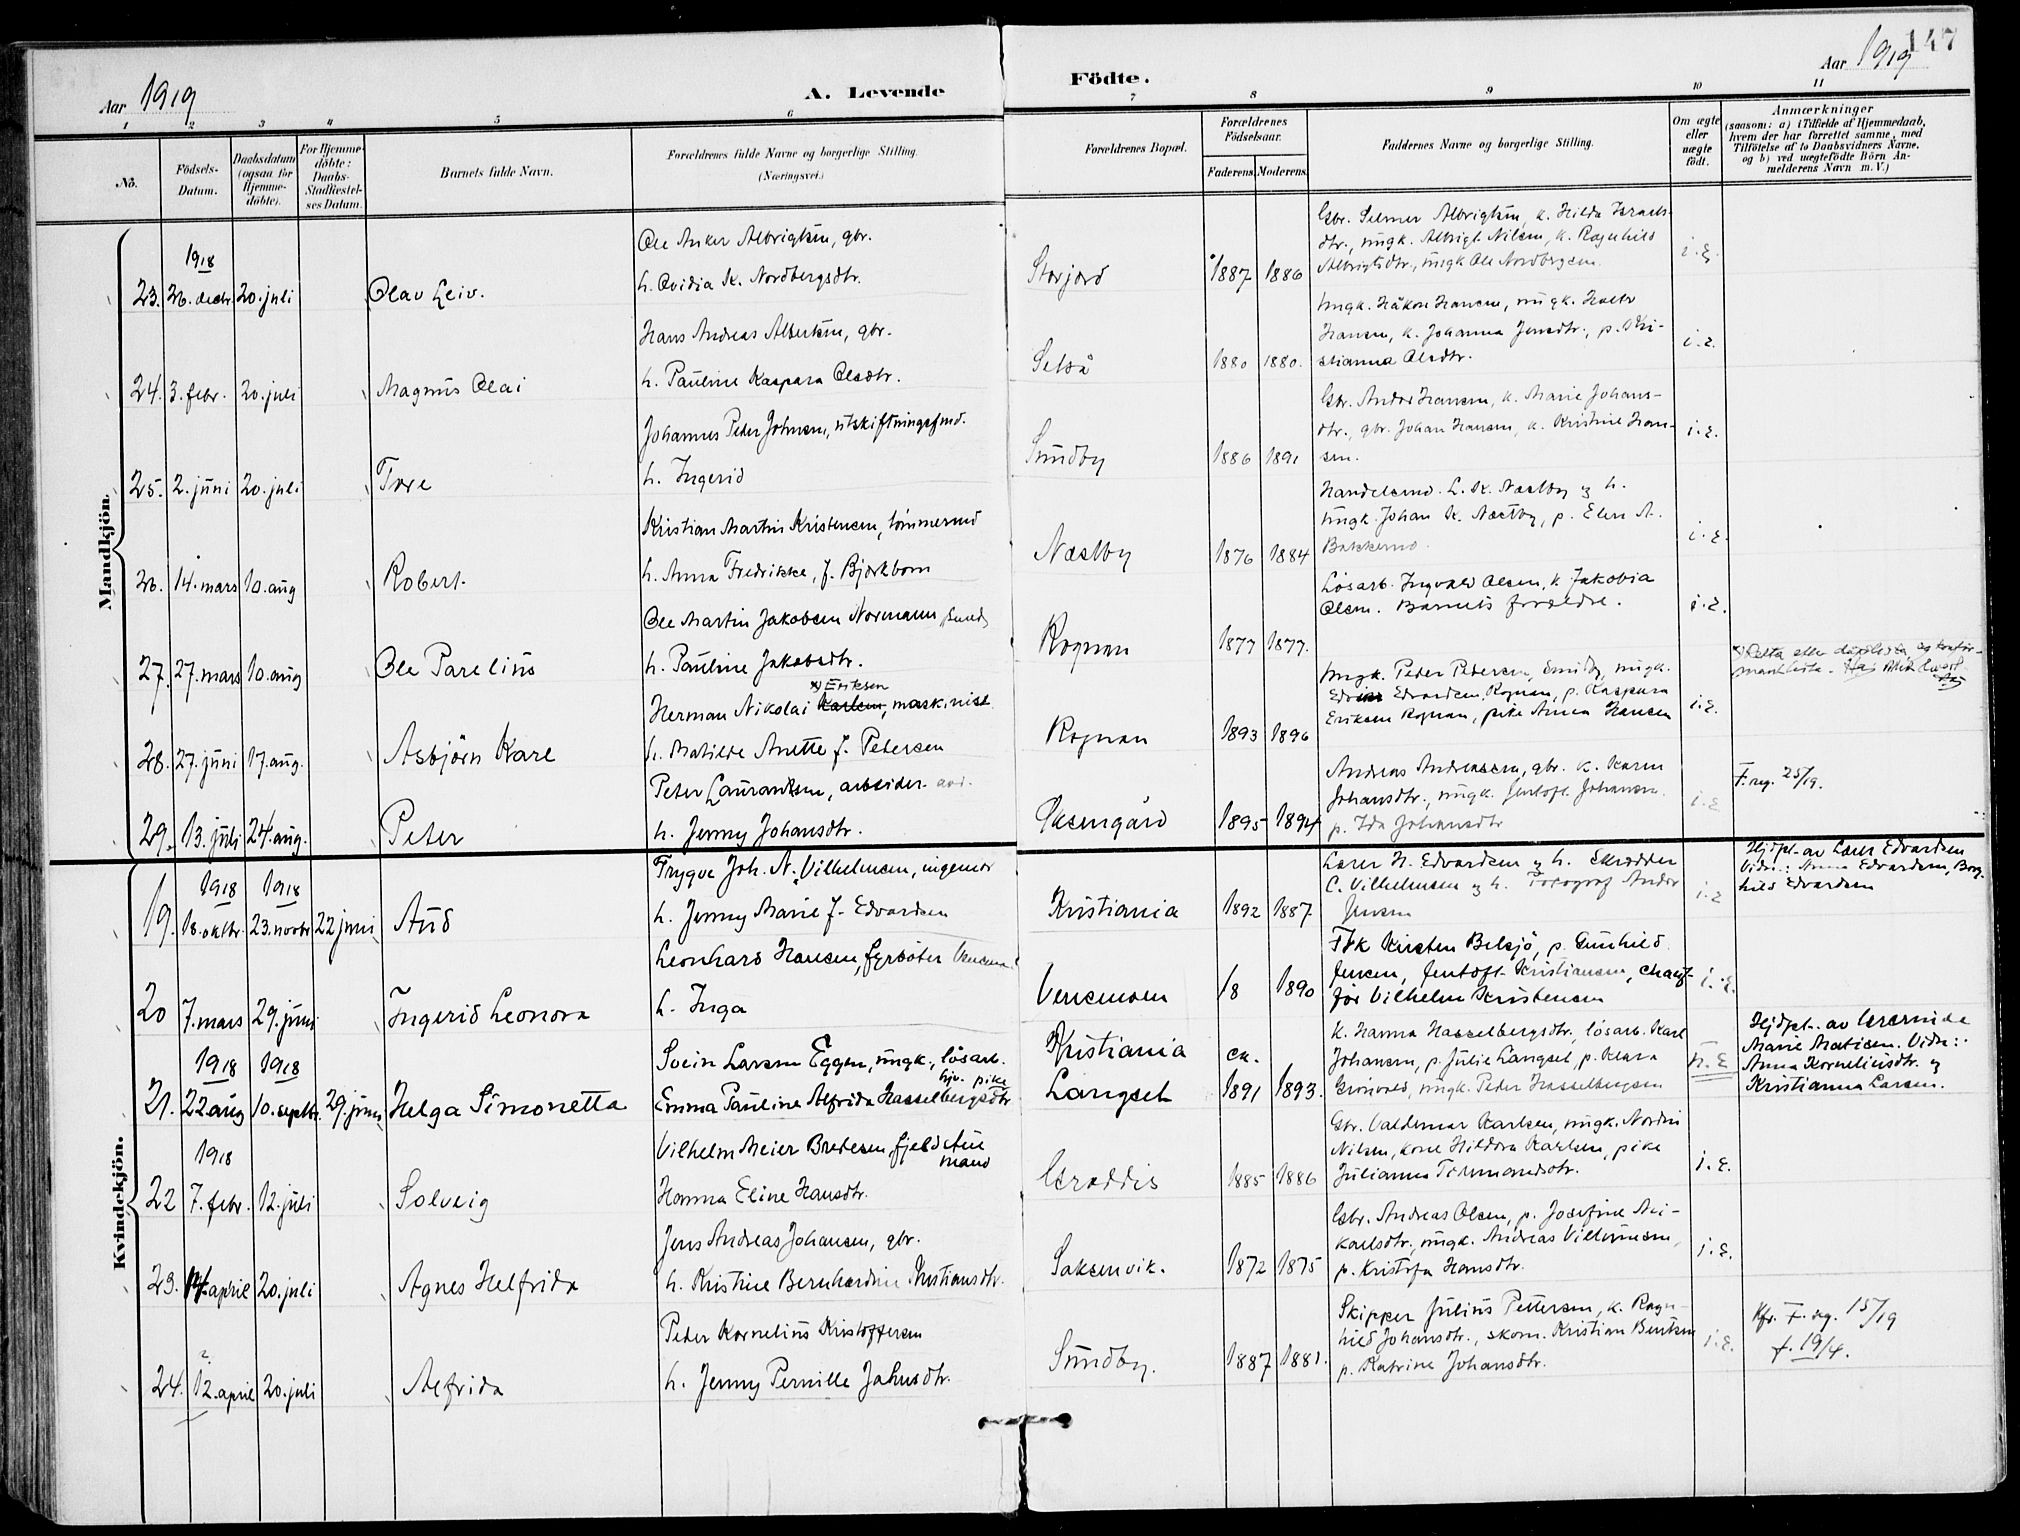 147
Aar 1919
A. Levende
Födte.
Aar 1919
1
2
3
4
5
6
7
8
9
10
11
No.
Födsels-
Datum.
Daabsdatum
(ogsaa for
Hjemme-
döbte).
For Hjemme-
döbte:
Daabs-
Stadfæstel-
ses Datum.
Barnets fulde Navn.
Forældrenes fulde Navne og borgerlige Stilling.
(Næringsvei.)
Forældrenes Bopæl.
Forældrenes
Födselsaar.
Faderens.
Moderens.
Faddernes Navne og borgerlige Stilling.
Om ægte
eller
uægte
födt.
Anmærkninger
(saasom: a) i Tilfælde af Hjemmedaab,
hvem der har forrettet samme, med
Tilföielse af to Daabsvidners Navne,
og b) ved uægtefödte Börn An-
melderens Navn m. V.)
Mandkjön.
1918
23. 26. decbr. 20. juli Olav Leiv.
Ole Anker Albrigtsen, gbr.
h. Ovidia K. Nordbergsdtr.
Storjord 1887 1886
Gbr. Selmer Albrigtsen, k. Hilda Israels-
dtr., ungk. Albrigt Nilsen, k. Ragnhild
Albrigtsdtr., ungk Ole Nordbergsen.
i. E.
24. 3. febr. 20. juli Magnus Olai
Hans Andreas Albertsen, gbr.
h. Pauline Kaspara Olsdtr.
Setså 1880 1880.
Ungk. Håkon Hansen, ungk.
Hansen, k. Johanna Jensdtr., p. Kri-
stianna Olsdtr.
i. E.
25. 2. juni 20. juli Tore
Johannes Peter Johnsen, utskiftningsfmd.
h. Ingerid
Sundby 1886 1891
Gbr. Andor Hansen, k. Marie Johans-
dtr., gbr. Johan Hansen, k. Kristine Han-
sen.
i. E.
26. 14. mars 10. aug Robert.
Kristian Martin Kristensen, tömmermd
h. Anna Fredrikke, f. Bjørkbom
Næstby 1876 1884
Handelsmd. L. K. Næstby og h.
Ungk. Johan K. Næstby, p. Elen A.
Bakkemo.
i. E.
27. 27. mars 10. aug Ole Parelius
Ole Martin Jakobsen Normann, smed,
h. Pauline Jakobsdtr.
Rognan 1877 1877.
Lösarb. Ingvald Olsen, k. Jakobia
Olsen. Barnets forældre.
i. E.
28. 27. juni 17. aug. Asbjörn Kare
x) Eriksen
Herman Nikolai Karlsen, maskinist
h. Matilde Anette f. Petersen
Rognan 1893 1896
Ungk. Peter Pedersen, Sundby, ungk.
Edvardsen, Rognan, p. Kaspara
Eriksen Rognan, pike Anna Hansen
i. E.
29. 13. juli 24. aug. Peter
Peter Laurantsen, arbeider
h. Jenny Johansdtr.
Oksengård 1895 1894
Andreas Andreassen, gbr. k. Karen
Johansdtr., ungk. Jentoft Johansen.
p. Ida Johansdtr
i. E.
F. reg. 25/19.
Kvindekjön.
1918 1918
19. 18. oktbr. 23. novbr 22 juni Aud
Trygve Joh. N. Vilhelmsen, ingeniör
h. Jenny Marie f. Edvardsen
Kristiania 1892 1887.
Lærer H. Edvardsen og h. Skrædder
C. Vilhelmsen og h. Fotograf Andor
Jensen
i. E
Hjdpt. av Lærer Edvardsen
Vidn.: Anna Edvardsen, Borg-
hild Edvardsen
20 7. mars 29. juni Ingerid Leonora
Leonhard Hansen, fyrböter
h. Inga
Venemoen 18 1890
Frk Kirsten Belsjö, p. Gunhild
Jensen, Jentoft Kristiansen, chauf-
för Vilhelm Kristensen
i. E.
1918 1918
21. 22 aug 10. septbr. 29. juni Helga Simonetta
Svein Larsen Eggen, ungk., lösarb.
hjv. pike
Emma Pauline Alfrida Hasselbergsdtr
Kristiania ca.
Langset 1891 1893.
k. Hanna Hasselbergsdtr, lösarb. Karl
Johansen, p. Julie Langset, p. Klara
Grönvold, ungk. Peter Hasselbergsen
u. E
Hjdpt. av lærerinde
Marie Matisen. Vidn:.
Anna Korneliusdtr. og
Kristianna Larsen.
1918
22 7. febr. 12. juli Solveig
Vilhelm Meier Bredesen, fjeldstue
mand
Hanna Eline Hansdtr.
Graddis 1885 1886
Gbr. Valdemar Karlsen, ungk. Nordin
Nilsen, kone Hildora Karlsen, pike
Julianna Tommasdtr.
i. E.
23. 14. april 20. juli Agnes Helfrida
Jens Andreas Johansen, gbr.
h. Kristine Bernhardine Kristiansdtr.
Saksenvik. 1872 1875
Gbr. Andreas Olsen, p. Josefine Ni-
karlsdtr., ungk. Andreas Villumsen,
p. Kristofa Hansdtr.
i. E.
24. 12. april 20. juli Alfrida
Peder Kornelius Kristoffersen
h. Jenny Pernille Jahnsdtr.
Sundby. 1887 1881.
Skipper Julius Pettersen, k. Ragn-
hild Johansdtr., skom. Kristian Bentsen
p. Katrine Johansdtr.
i. E.
Kfr. F. reg. 15/19
f. 19/4.